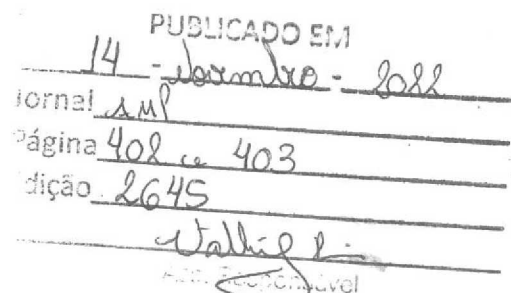 PUBLICADO EM
14 - Novembro - 2022
Jornal AMP
Página 402 e 403
dição 2645
Responsável